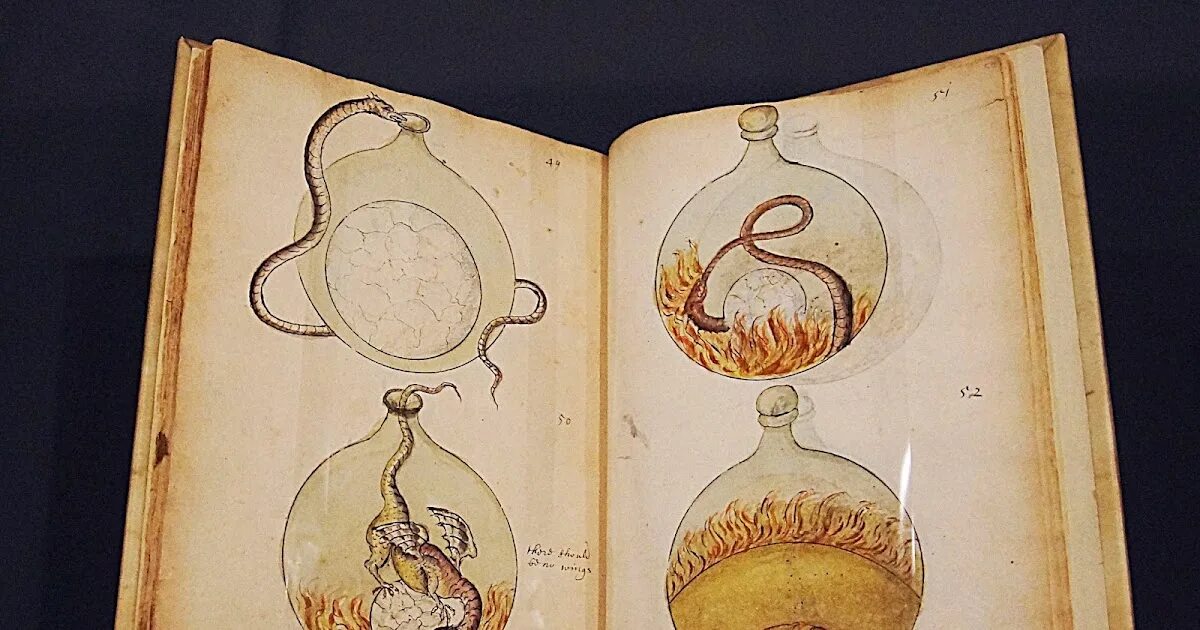 49
50
there should
be no wings
51
52